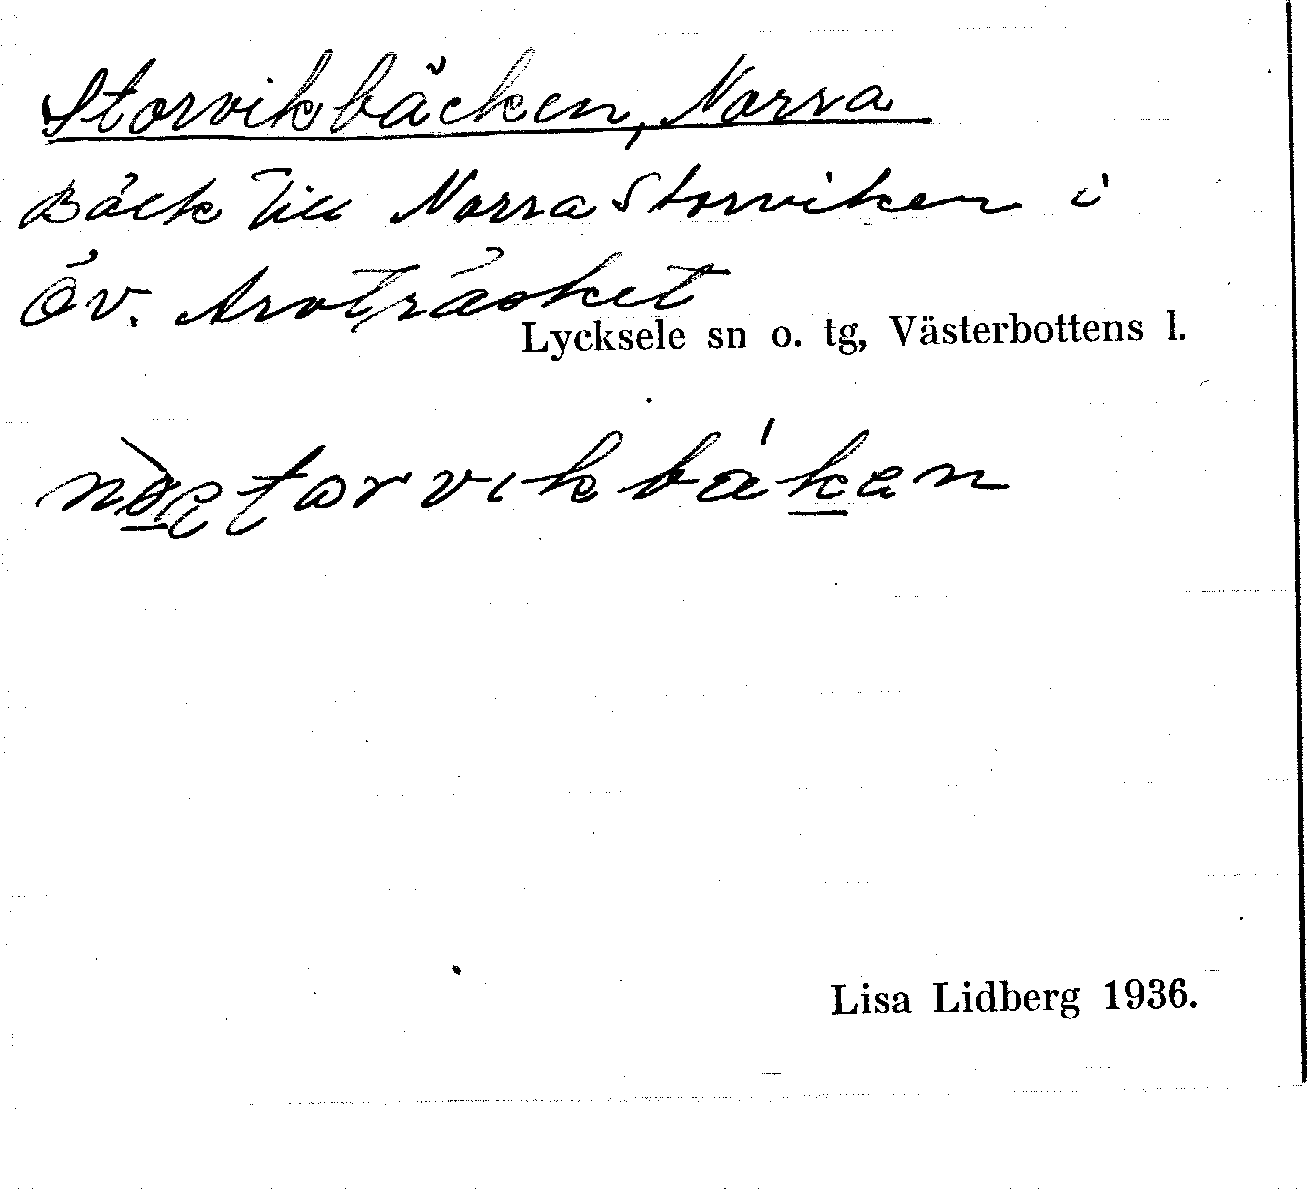 Storvikbäcken, Norra
Bäck till Norra Storviken i
Öv. Arvträsket
Lycksele sn o. tg, Västerbottens l.
Lisa Lidberg 1936.